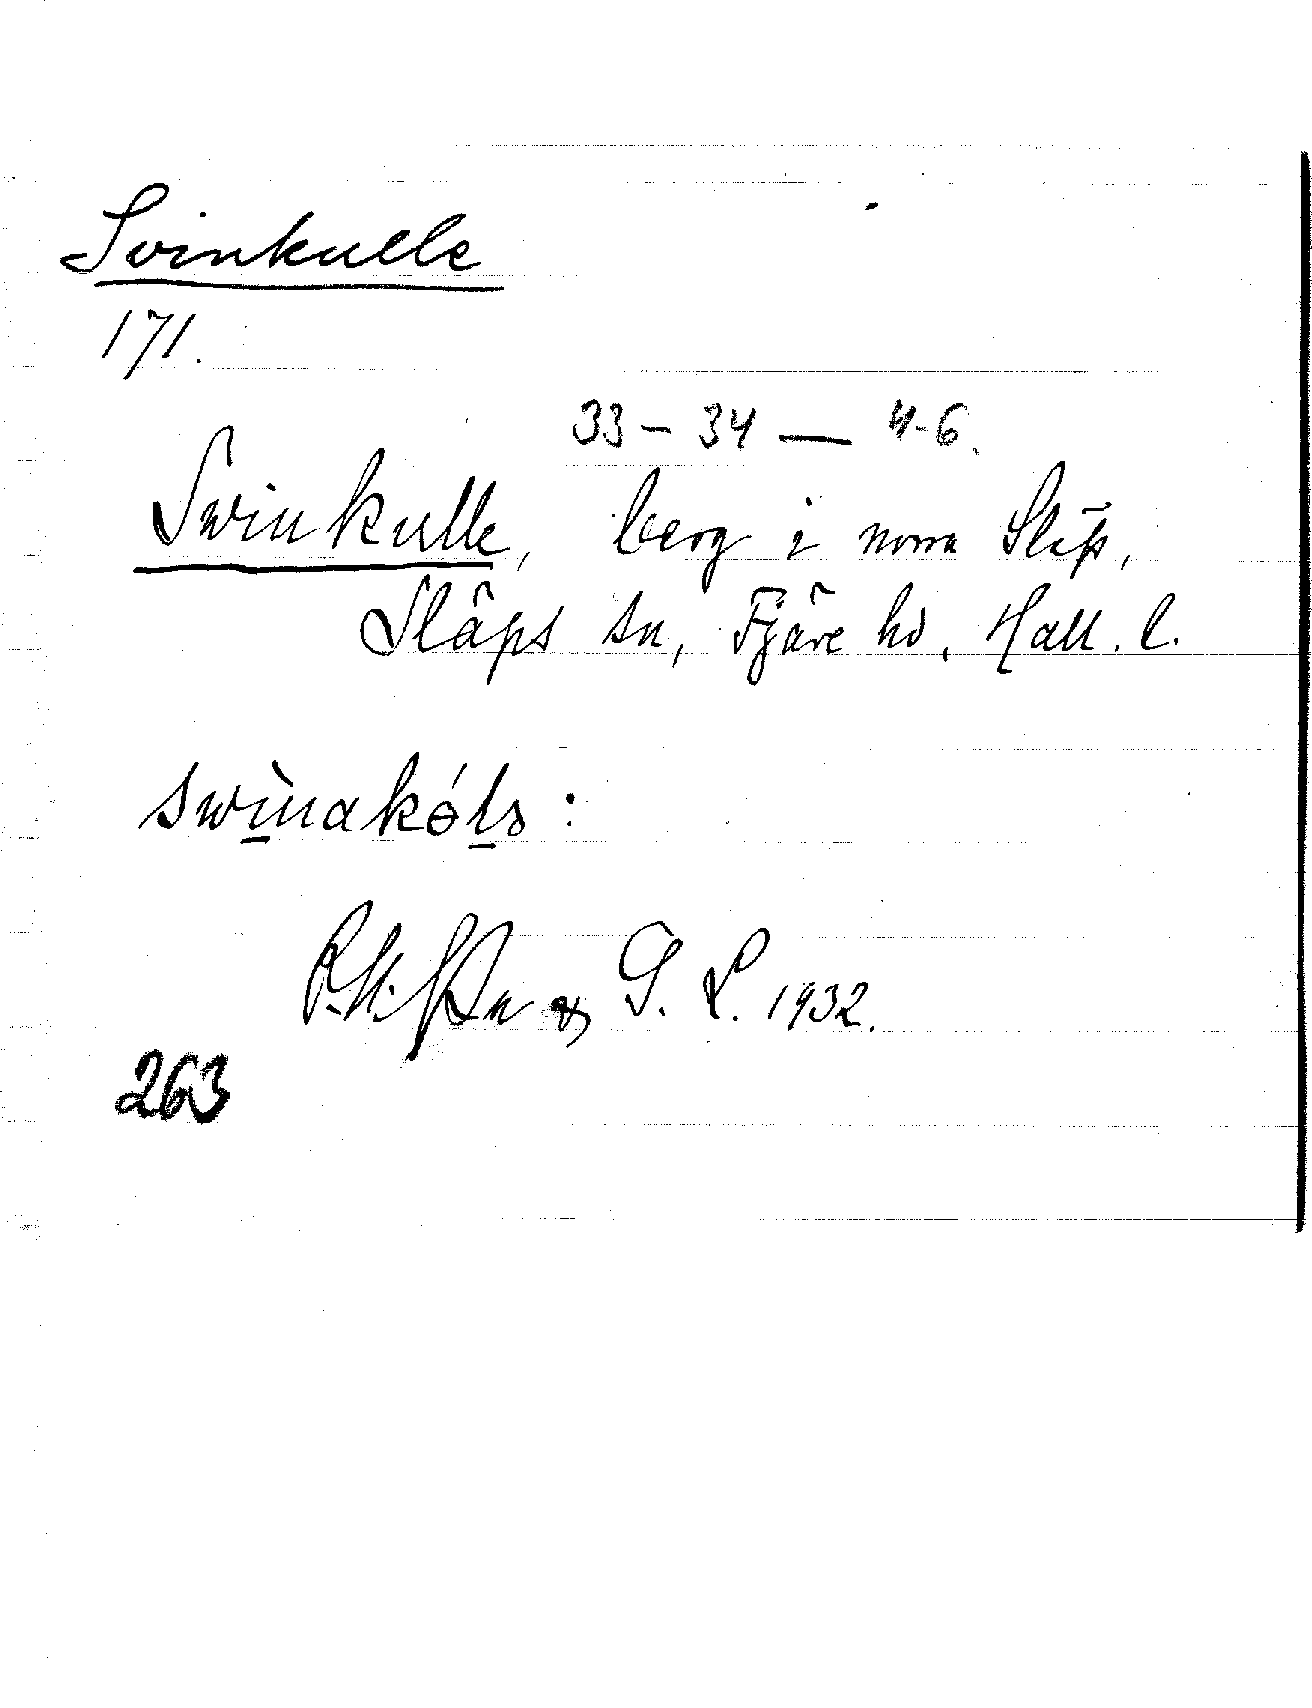 Svinkulle
171.
33 – 34 — 4-6.
Svinkulle, berg i norra Släp,
Släps sn, Fjäre hd, Hall. l.
& G. L. 1932.
263